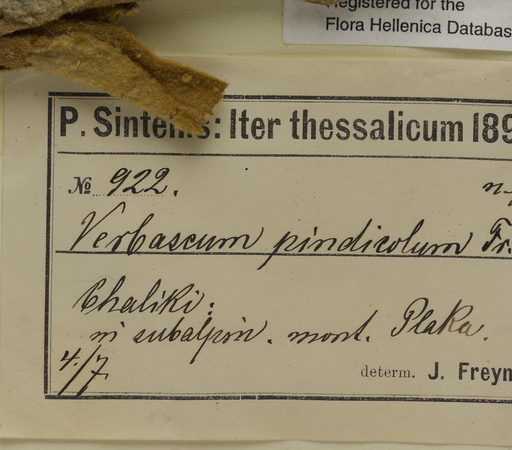 Registered for the
Flora Hellenica Databas
P. Sintenis: Iter thessalicum 189
№ 922.
Verbascum pindicolum Fr.
Chaliki:
in subalpin. mont. Plaka.
4/7
determ. J. Freyn